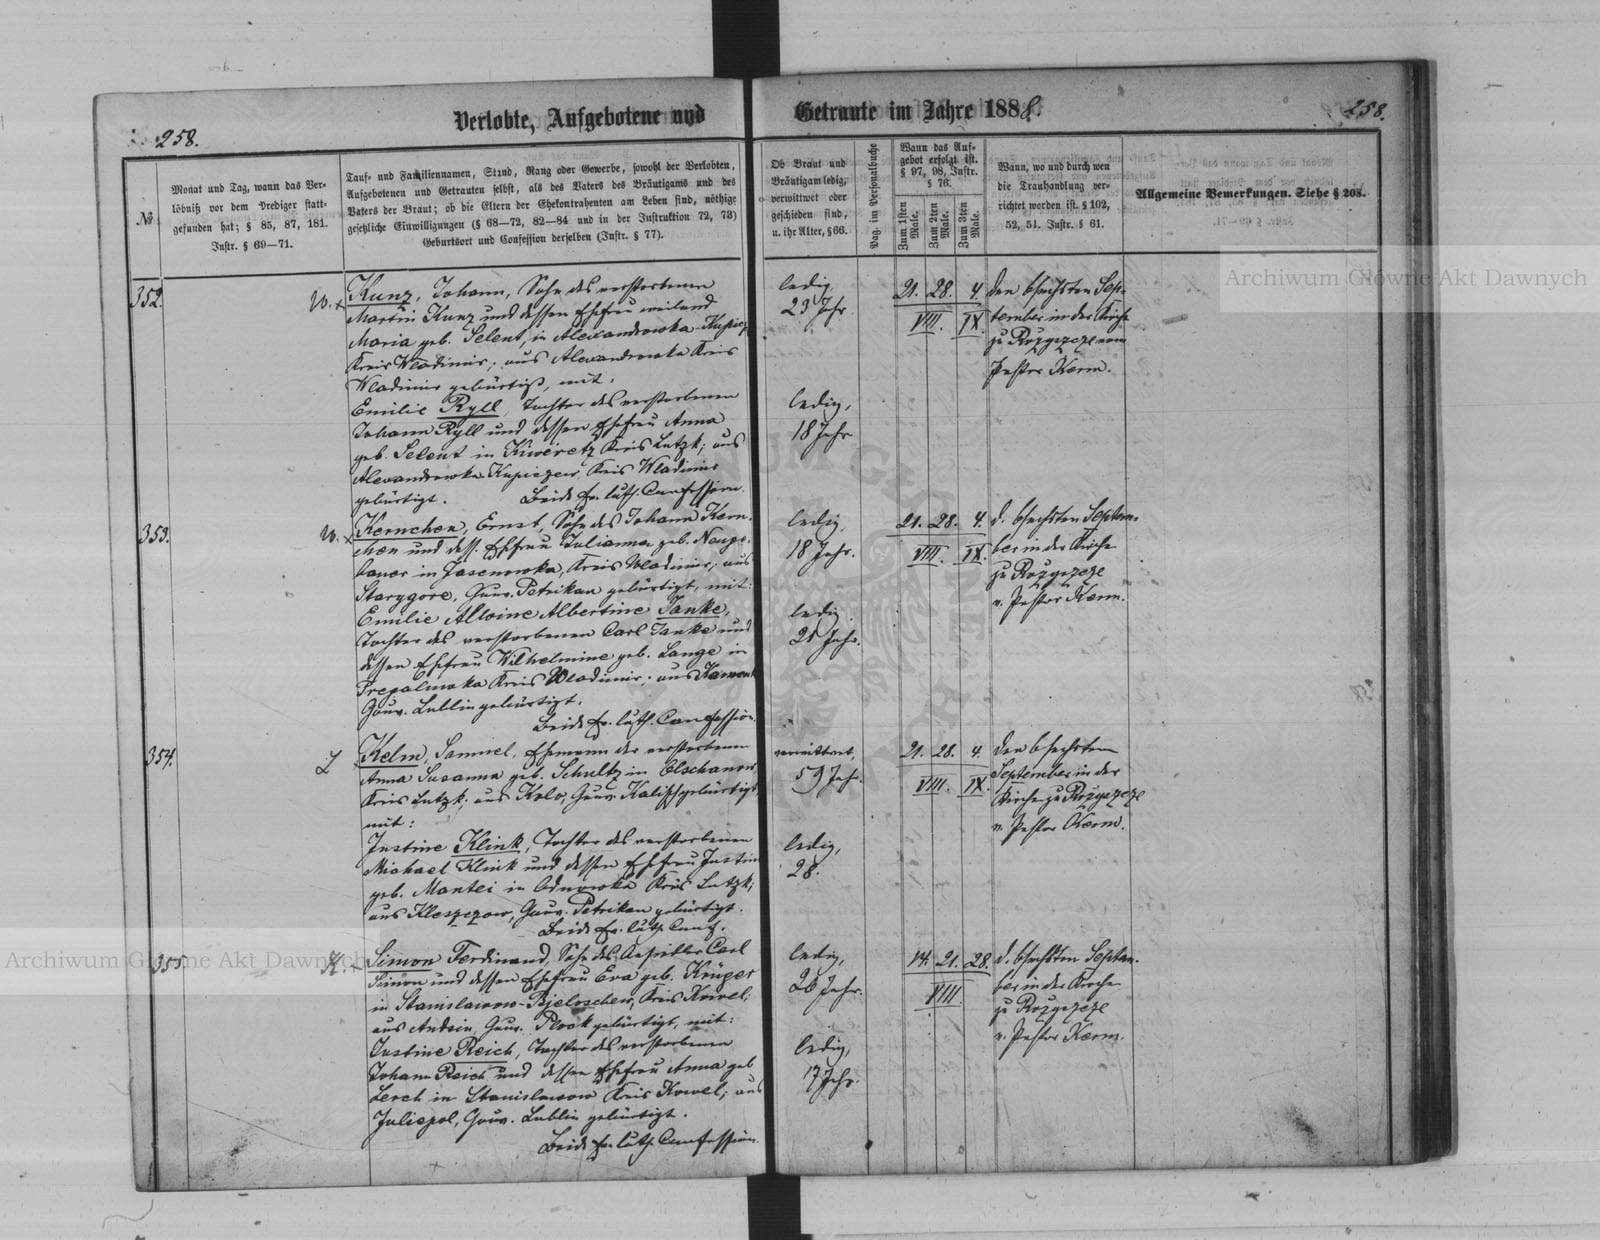 Verlobte, Aufgebotene und Getraute im Jahre 1888.
258.
258.
№
Monat und Tag, wann das Ver-
löbniß vor dem Prediger statt-
gefunden hat; § 85, 87, 181.
Instr. § 69—71.
Tauf- und Familiennamen, Stand, Rang oder Gewerbe, sowohl der Verlobten,
Aufgebotenen und Getrauten selbst, als des Vaters des Bräutigams und des
Vaters der Braut; ob die Eltern der Ehekontrahenten am Leben sind, nöthige
gesetzliche Einwilligungen (§ 68—72, 82—84 und in der Instruktion 72, 73)
Geburtsort und Confession derselben (Instr. § 77).
Ob Braut und
Bräutigam ledig,
verwittwet oder
geschieden sind,
u. ihr Alter, § 66.
Pag. im Personalbuche
Wann das Auf-
gebot erfolgt ist.
§ 97, 98, Instr.
§ 76.
Zum 1sten Male.
Zum 2ten Male.
Zum 3ten Male.
Wann, wo und durch wen
die Trauhandlung ver-
richtet worden ist. § 102,
52, 51. Instr. § 61.
Allgemeine Bemerkungen. Siehe § 208.
352.
W. x
Kunz, Johann, Sohn des verstorbenen
Martin Kunz und dessen Ehefrau weiland
Maria geb. Selent, in Alexandrowka-Kupicz
Kreis Wladimir; aus Alexandrowka Kreis
Wladimir gebürtigt, mit:
Emilie Ryll, Tochter des verstorbenen
Johann Ryll und dessen Ehefrau Anna
geb. Selent in Kiweretz Kreis Lutzk; aus
Alexandrowka Kupiczew Kreis Wladimir
gebürtigt. Beide Ev. luth. Confession.
ledig,
23 Jahr
ledig,
18 Jahr
21. 28. 4.
VIII. IX.
den 6 sechsten Sep-
tember in der Kirche
zu Rozyszcze vom
Pastor Kerm.
353.
W. x
Kernchen, Ernst, Sohn des Johann Kern-
chen und dess. Ehefrau Julianna geb. Neuge-
bauer in Jasenowka, Kreis Wladimir; aus
Starygore, Gouv. Petrikau gebürtigt, mit:
Emilie Alwine Albertine Janke,
Tochter des verstorbenen Carl Janke und
dessen Ehefrau Wilhelmine geb. Lange in
Kreis Wladimir; aus Kamen
Gouv. Lublin gebürtigt.
Beide Ev. luth. Confession.
ledig,
18 Jahr.
ledig
21 Jahr.
21. 28. 4.
VIII. IX.
d. 6 sechsten Septem-
ber in der Kirche
zu Rozyszcze
v. Pastor Kerm.
354.
Kelm, Samuel, Ehemann der verstorbenen
Anna Susanna geb. Schultz in Olschanow
Kreis Lutzk; aus Kolo, Gouv. Kalisch gebürtigt,
mit:
Justine Klink, Tochter des verstorbenen
Michael Klink und dessen Ehefrau Justine
geb. Mantei in Kreis Lutzk;
aus Kleszczow, Gouv. Petrikau gebürtigt.
Beide Ev. luth. Conf.
verwittwet,
59 Jahr.
ledig,
28.
21. 28. 4.
VIII. IX.
den 6 sechsten
September in der
Kirche zu Rozyszcze
v. Pastor Kerm.
355.
Simon Ferdinand, Sohn des Ansiedler Carl
Simon und dessen Ehefrau Eva geb. Krüger
in Kreis Kowel;
aus Gouv. Plock gebürtigt, mit:
Justine Reich, Tochter des verstorbenen
Johann Reich und dessen Ehefrau Anna geb
Lerch in Stanislawow Kreis Kowel; aus
Juliopol, Gouv. Lublin gebürtigt.
Beide Ev. luth. Confession.
ledig,
26 Jahr.
ledig,
17 Jahr.
14. 21. 28.
VIII.
d. 6 sechsten Septem-
ber in der Kirche
zu Rozyszcze
v. Pastor Kerm.
Archiwum Główne Akt Dawnych
Archiwum Główne Akt Dawnych